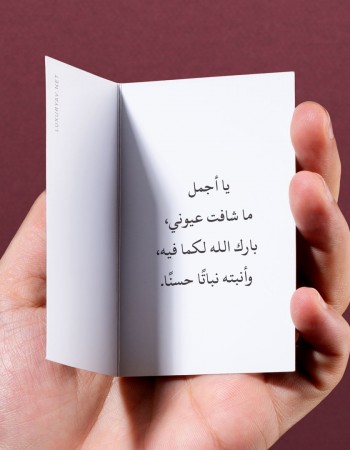 يا أجمل
ما شافت عيوني،
بارك الله لكما فيه،
وأنبته نباتًا حسنًا.